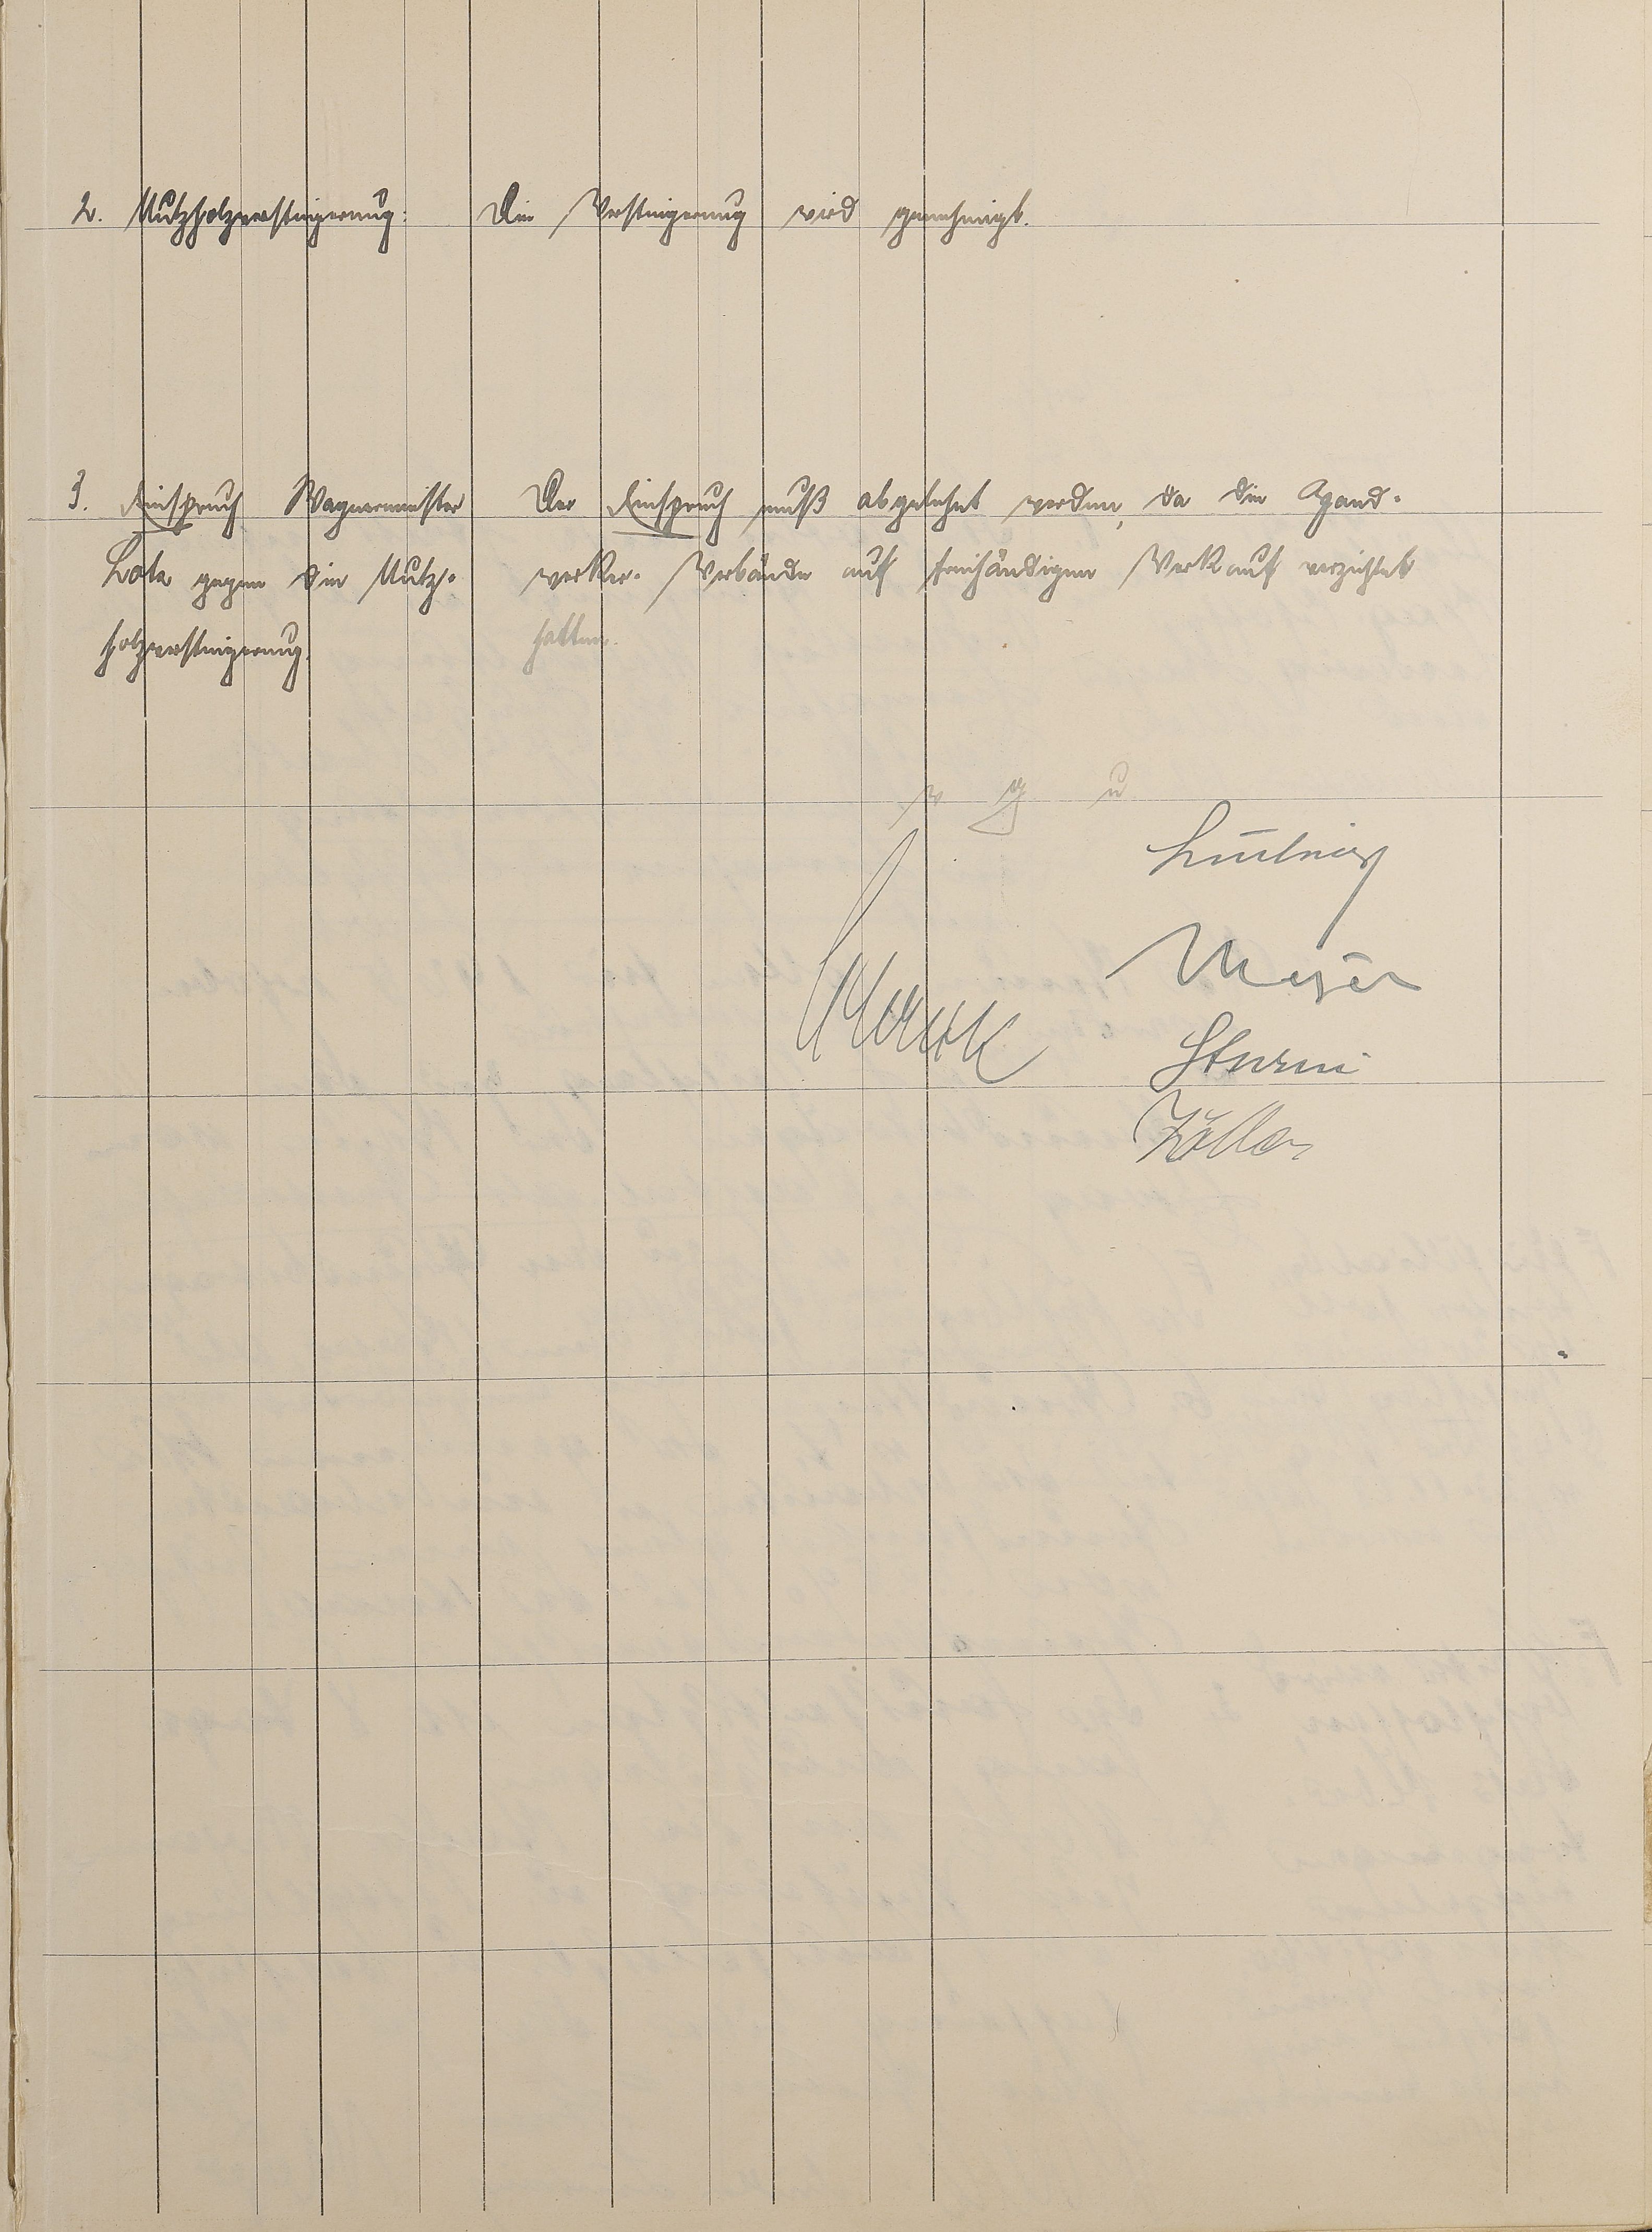 2. Nutzholzversteigerung: Die Versteigerung wird genehmigt.
3. Einspruch Wagnermeister
Lotz gegen die Nutz-
holzversteigerung.
Der Einspruch muß abgelehnt werden, da die Hand-
werker-Verbände auf freihändigen Verkauf verzichtet
hatten.
v g u
Ludwig
Meyer
Sturm
Zöller